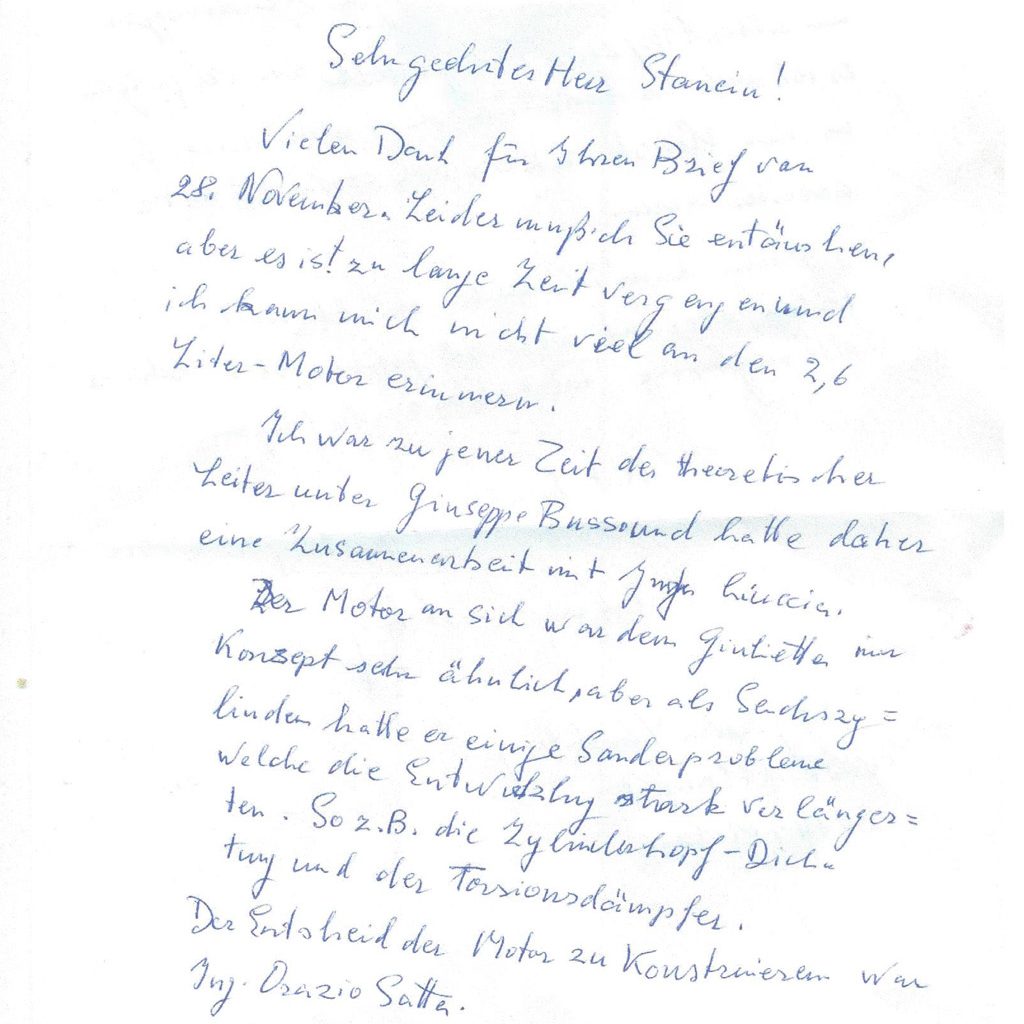 Sehr geehrter Herr Stancin!
Vielen Dank für Ihren Brief von
28. November. Leider muß ich Sie entäuschen,
aber es ist zu lange Zeit vergangen und
ich kann mich nicht viel an den 2,6
Liter-Motor erinnern.
Ich war zu jener Zeit der theoretischer
Leiter unter Giuseppe Busso und hatte daher
eine Zusammenarbeit mit
Der Motor an sich war dem Giulietta im
Konzept sehr ähnlich, aber als Sechszy=
linder hatte er einige Sonderprobleme
welche die Entwicklung stark verlänger=
ten. So z.B. die Zylinderkopf-Dich-
tung und der Torsionsdämpfer.
Der Entscheid der Motor zu Konstruieren war
Ing. Orazio Satta.